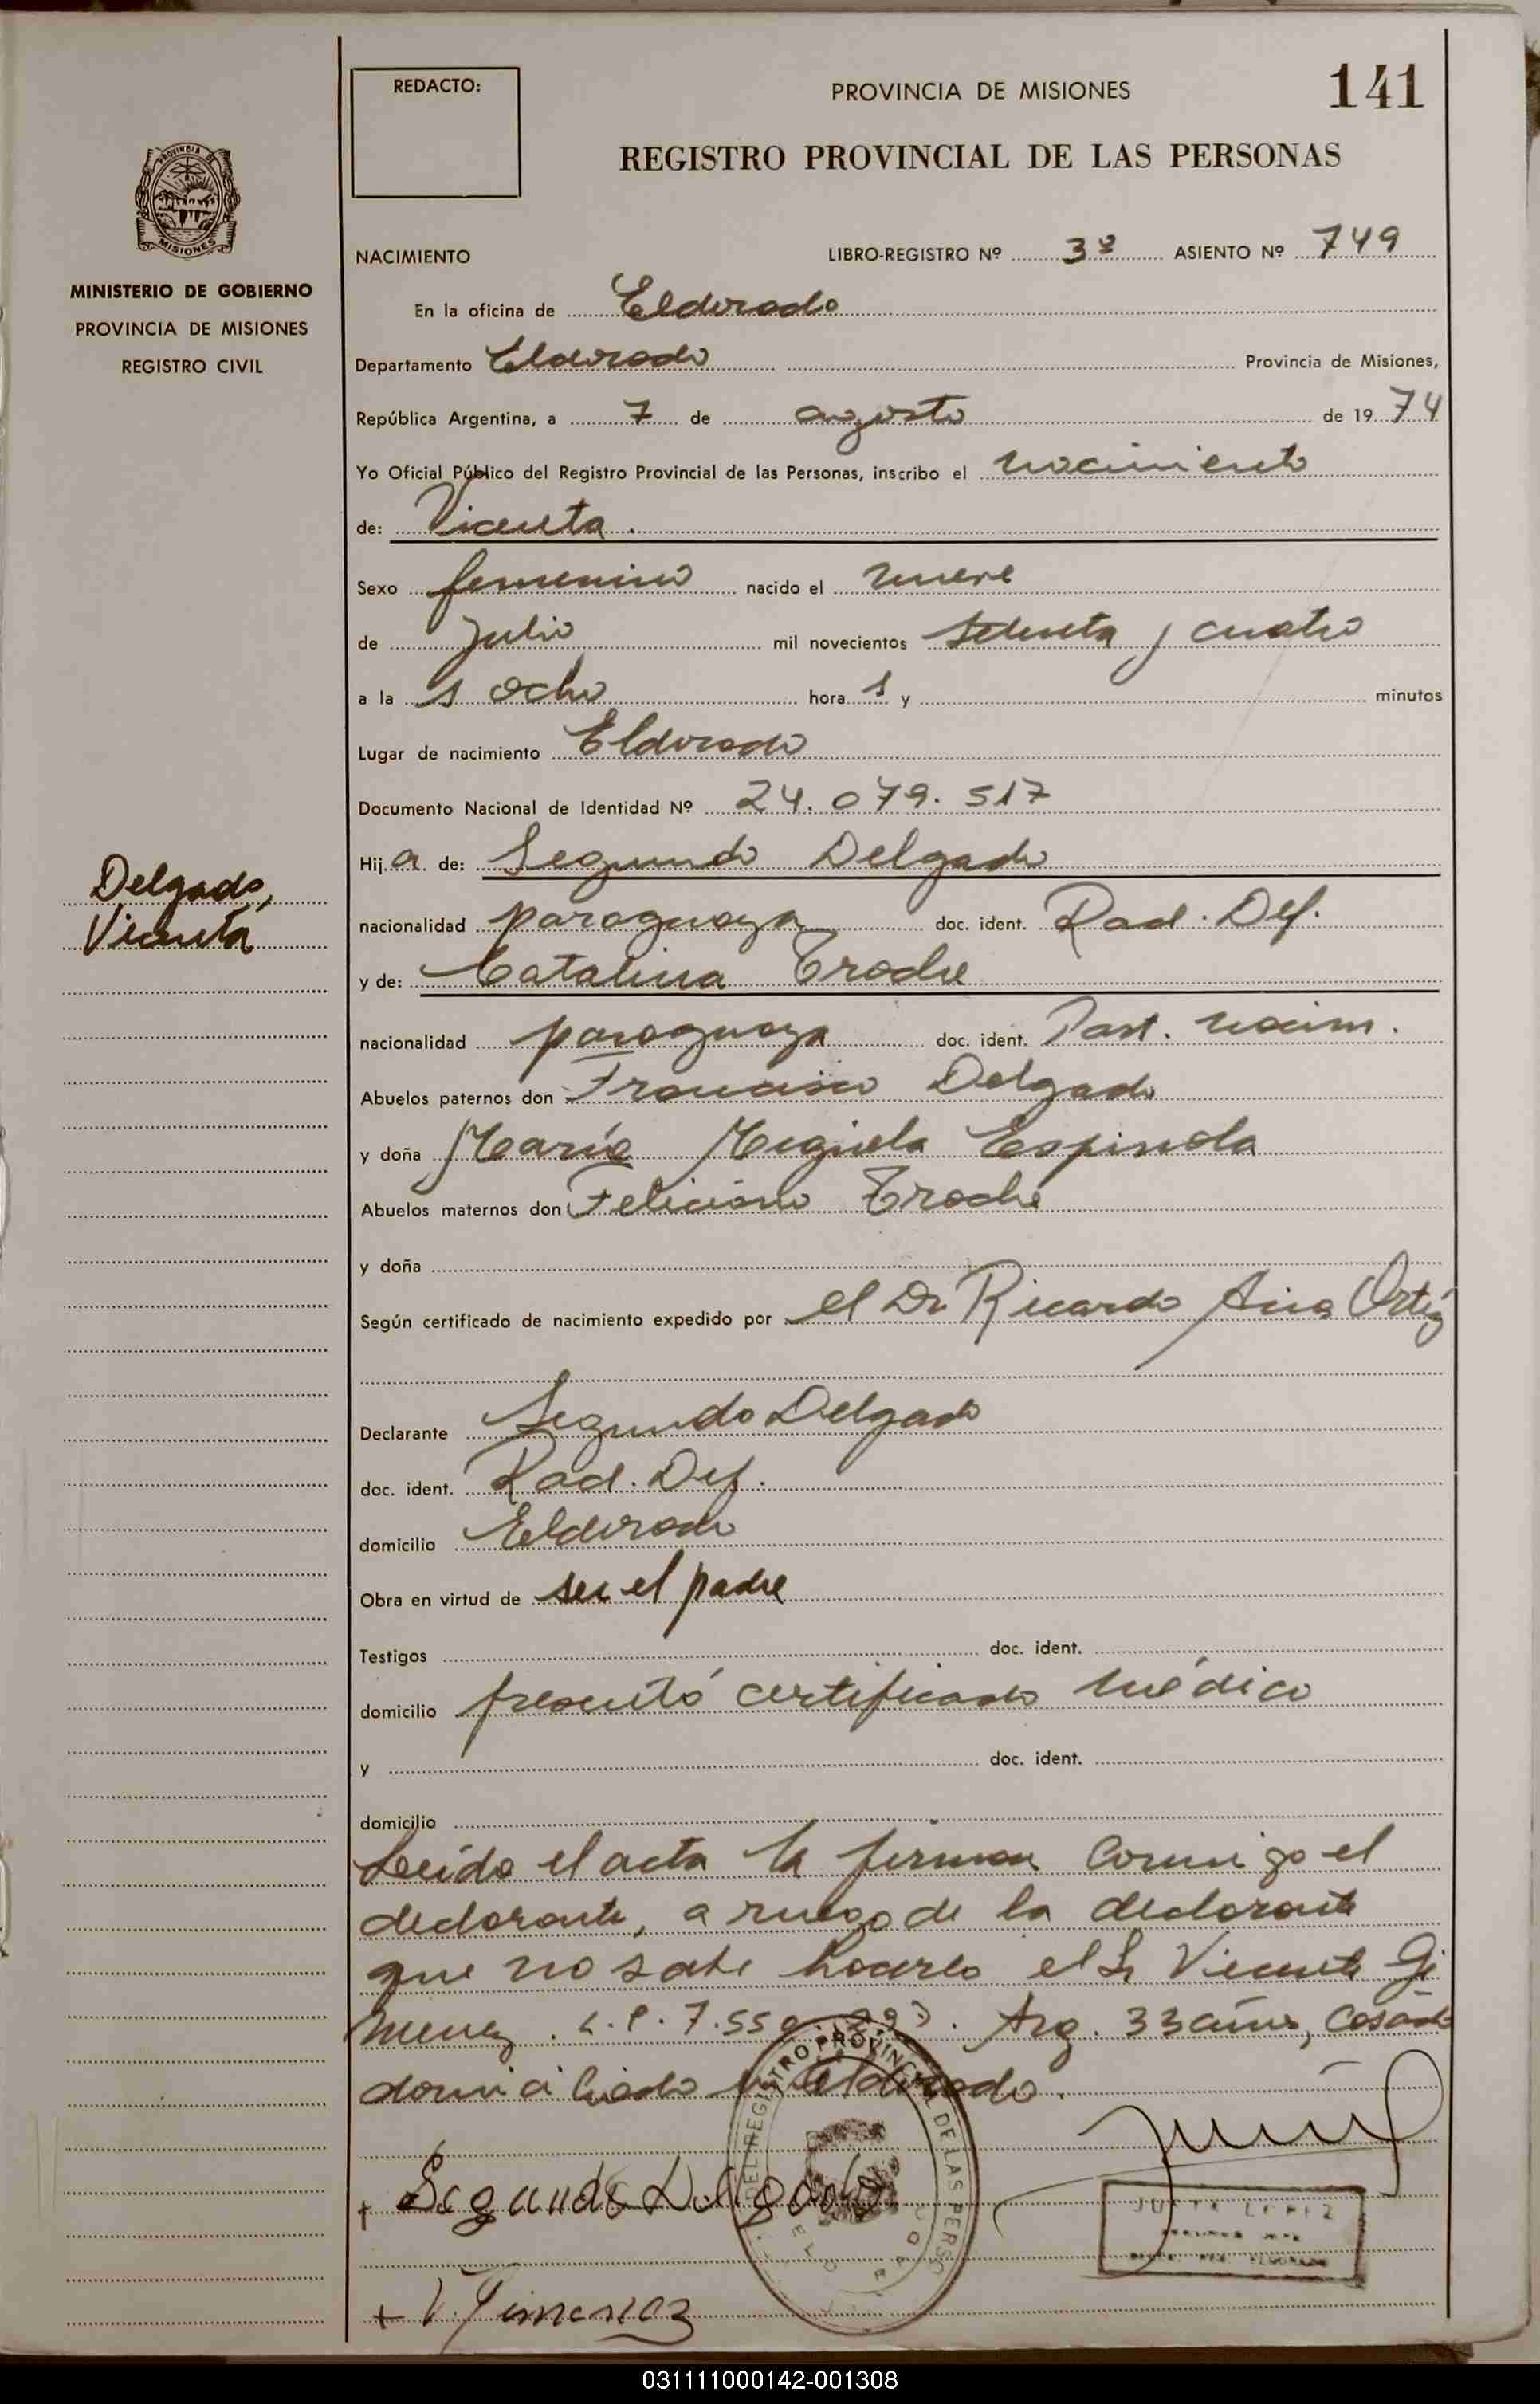 REDACTO:
PROVINCIA DE MISIONES
141
REGISTRO PROVINCIAL DE LAS PERSONAS
PROVINCIA
MISIONES
MINISTERIO DE GOBIERNO
PROVINCIA DE MISIONES
REGISTRO CIVIL
NACIMIENTO LIBRO-REGISTRO Nº 3º ASIENTO Nº 749
En la oficina de Eldorado
Departamento Eldorado Provincia de Misiones,
República Argentina, a 7 de agosto de 1974
Yo Oficial Público del Registro Provincial de las Personas, inscribo el nacimiento
de: Vicenta.
Sexo femenino nacido el nueve
de Julio mil novecientos setenta y cuatro
a la s ocho hora s y minutos
Lugar de nacimiento Eldorado
Documento Nacional de Identidad Nº 24.079.517
Hija de: Segundo Delgado
Delgado,
Vicenta
nacionalidad paraguaya doc. ident. Rad. Def.
y de: Catalina Troche
nacionalidad paraguaya doc. ident. Part. nacim.
Abuelos paternos don Francisco Delgado
y doña María Miguela Espinola
Abuelos maternos don Feliciano Troche
y doña
Según certificado de nacimiento expedido por el Dr Ricardo Ortiz
Declarante Segundo Delgado
doc. ident. Rad. Def.
domicilio Eldorado
Obra en virtud de ser el padre
Testigos doc. ident.
domicilio presentó certificado médico
y doc. ident.
domicilio
Leída el acta la firman conmigo el
declarante, a ruego de la declarante
que no sabe hacerlo el Sr Vicente Gi
menez. L.P. 7.550. Arg. 33 años, casado
domiciliado en Eldorado.
DEL REGISTRO PROVINCIAL DE LAS PERSO
ELDORADO
+ Segundo Delgado
JUSTA LOPEZ
+ V. Gimenez
031111000142-001308